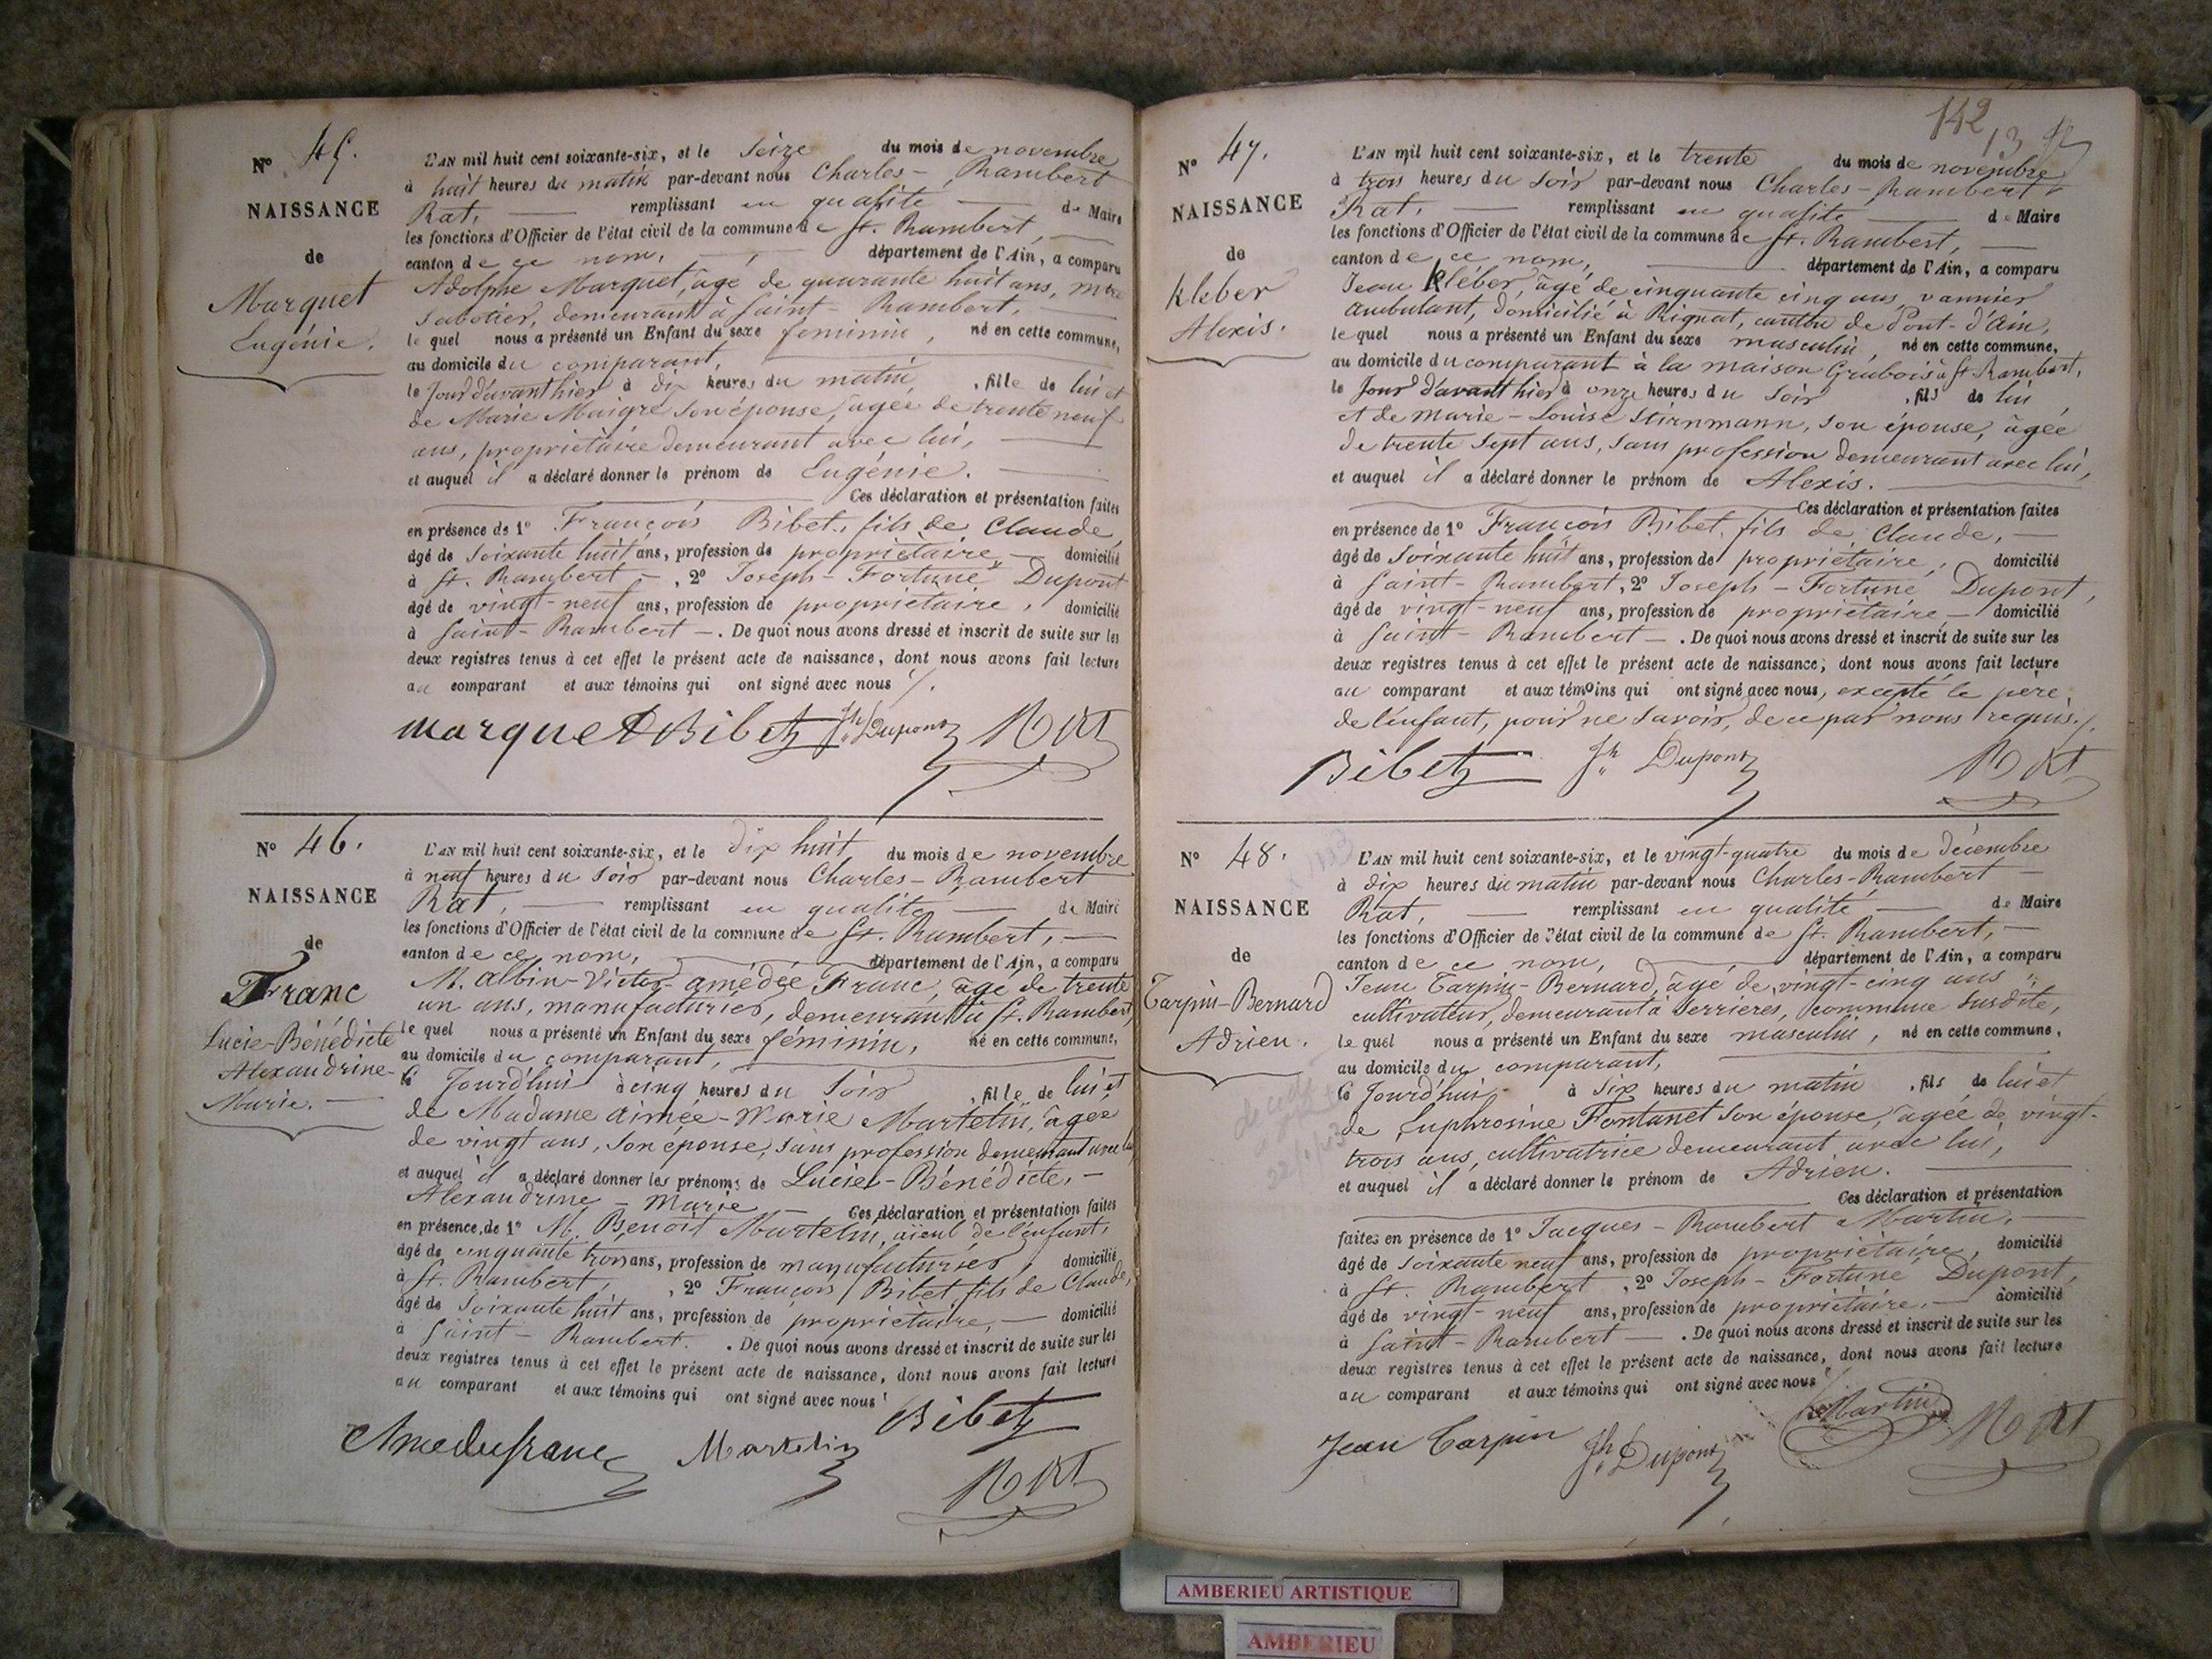 N° 45.
NAISSANCE
de
Marquet
Eugénie.
L'AN mil huit cent soixante-six, et le seize du mois de novembre
à huit heures du matin par-devant nous Charles-Rambert
Rat, remplissant en qualité de Maire
les fonctions d'Officier de l'état civil de la commune de St. Rambert,
canton de ce nom, département de l'Ain, a comparu
Adolphe Marquet, âgé de quarante huit ans,
sabotier, demeurant à Saint-Rambert,
le quel nous a présenté un Enfant du sexe féminin, né en cette commune,
au domicile du comparant,
le jour d'avant hier à dix heures du matin, fille de lui et
de Marie Maigre son épouse, âgée de trente neuf
ans, propriétaire demeurant avec lui,
et auquel il a déclaré donner le prénom de Eugénie.
Ces déclaration et présentation faites
en présence de 1° François Bibet, fils de Claude,
âgé de soixante huit ans, profession de propriétaire domicilié
à St. Rambert, 2° Joseph-Fortuné Dupont
âgé de vingt-neuf ans, profession de propriétaire, domicilié
à Saint-Rambert. De quoi nous avons dressé et inscrit de suite sur les
deux registres tenus à cet effet le présent acte de naissance, dont nous avons fait lecture
au comparant et aux témoins qui ont signé avec nous
Marquet Bibet Jh Dupont Rat
N° 46.
NAISSANCE
de
Franc
Lucie-Bénédicte
Alexandrine-
Marie.
L'AN mil huit cent soixante-six, et le dix huit du mois de novembre
à neuf heures du soir par-devant nous Charles-Rambert
Rat, remplissant en qualité de Maire
les fonctions d'Officier de l'état civil de la commune de St. Rambert,
canton de ce nom, département de l'Ain, a comparu
M. Albin-Victor-Amédée Franc, âgé de trente
un ans, manufacturier, demeurant à St. Rambert,
le quel nous a présenté un Enfant du sexe féminin, né en cette commune,
au domicile du comparant,
le jourd'hui à cinq heures du soir, fille de lui et
de Madame Aimée-Marie Martelin, âgée
de vingt ans, son épouse, sans profession demeurant avec lui
et auquel il a déclaré donner les prénoms de Lucie-Bénédicte,
Alexandrine-Marie Ces déclaration et présentation faites
en présence de 1° M. Benoît Martelin, aïeul de l'enfant,
âgé de cinquante trois ans, profession de manufacturier, domicilié
à St. Rambert, 2° François Bibet fils de Claude,
âgé de soixante huit ans, profession de propriétaire, domicilié
à Saint-Rambert. De quoi nous avons dressé et inscrit de suite sur les
deux registres tenus à cet effet le présent acte de naissance, dont nous avons fait lecture
au comparant et aux témoins qui ont signé avec nous
Amedée franc Martelin Bibet
Rat
142
N° 47.
NAISSANCE
de
Kléber
Alexis.
L'AN mil huit cent soixante-six, et le trente du mois de novembre
à trois heures du soir par-devant nous Charles-Rambert
Rat, remplissant en qualité de Maire
les fonctions d'Officier de l'état civil de la commune de St. Rambert,
canton de ce nom, département de l'Ain, a comparu
Jean Kléber, âgé de cinquante cinq ans, vannier
ambulant, domicilié à Rignat, canton de Pont-d'Ain,
le quel nous a présenté un Enfant du sexe masculin, né en cette commune,
au domicile du comparant à la maison Grubois à St. Rambert,
le jour d'avant hier à onze heures du soir, fils de lui
et de Marie-Louise Stirnmann, son épouse, âgée
de trente sept ans, sans profession demeurant avec lui,
et auquel il a déclaré donner le prénom de Alexis.
Ces déclaration et présentation faites
en présence de 1° François Bibet, fils de Claude,
âgé de soixante huit ans, profession de propriétaire, domicilié
à Saint-Rambert, 2° Joseph-Fortuné Dupont,
âgé de vingt-neuf ans, profession de propriétaire domicilié
à Saint-Rambert. De quoi nous avons dressé et inscrit de suite sur les
deux registres tenus à cet effet le présent acte de naissance, dont nous avons fait lecture
au comparant et aux témoins qui ont signé avec nous, excepté le père
de l'enfant, pour ne savoir, de ce par nous requis.
Bibet Jh Dupont Rat
N° 48.
NAISSANCE
de
Tarpin-Bernard
Adrien.
L'AN mil huit cent soixante-six, et le vingt-quatre du mois de décembre
à dix heures du matin par-devant nous Charles-Rambert
Rat, remplissant en qualité de Maire
les fonctions d'Officier de l'état civil de la commune de St. Rambert,
canton de ce nom, département de l'Ain, a comparu
Jean Tarpin-Bernard, âgé de vingt-cinq ans
cultivateur, demeurant à Serrières, commune susdite,
le quel nous a présenté un Enfant du sexe masculin, né en cette commune,
au domicile du comparant,
le jourd'hui à six heures du matin, fils de lui et
de Euphrosine Fontanet son épouse, âgée de vingt-
trois ans, cultivatrice demeurant avec lui,
et auquel il a déclaré donner le prénom de Adrien.
Ces déclaration et présentation
faites en présence de 1° Jacques-Rambert Martin,
âgé de soixante neuf ans, profession de propriétaire, domicilié
à St. Rambert, 2° Joseph-Fortuné Dupont,
âgé de vingt-neuf ans, profession de propriétaire, domicilié
à Saint-Rambert. De quoi nous avons dressé et inscrit de suite sur les
deux registres tenus à cet effet le présent acte de naissance, dont nous avons fait lecture
au comparant et aux témoins qui ont signé avec nous
Jean Tarpin Jh Dupont Martin Rat
AMBERIEU ARTISTIQUE
AMBERIEU